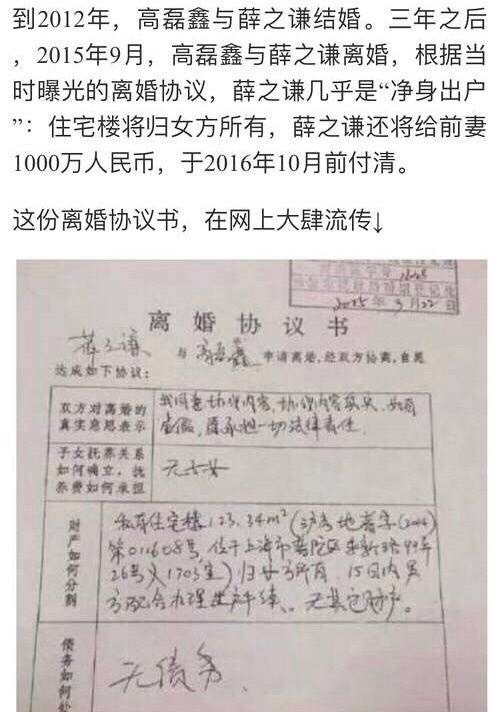 到2012年，高磊鑫与薛之谦结婚。三年之后
，2015年9月，高磊鑫与薛之谦离婚，根据当
时曝光的离婚协议，薛之谦几乎是“净身出户
”：住宅楼将归女方所有，薛之谦还将给前妻
1000万人民币，于2016年10月前付清。
这份离婚协议书，在网上大肆流传↓
2015年9月22日
离婚协议书
薛之谦 与 高磊鑫 申请离婚，经双方协商，自愿
达成如下协议：
双方对离婚的
真实意思表示
我同意协议内容，协议内容真实，如有
虚假，愿承担一切法律责任。
子女抚养关系
如何确立，抚
养费如何承担
无子女
财产如何分割
私有住宅楼123.34m²（沪房地普字(2014)
第011608号，位于上海市普陀区 新路99弄
26号 1703室）归女方所有，15日内男
方配合办理过户手续。无其它财产。
债务如何处
无债务。